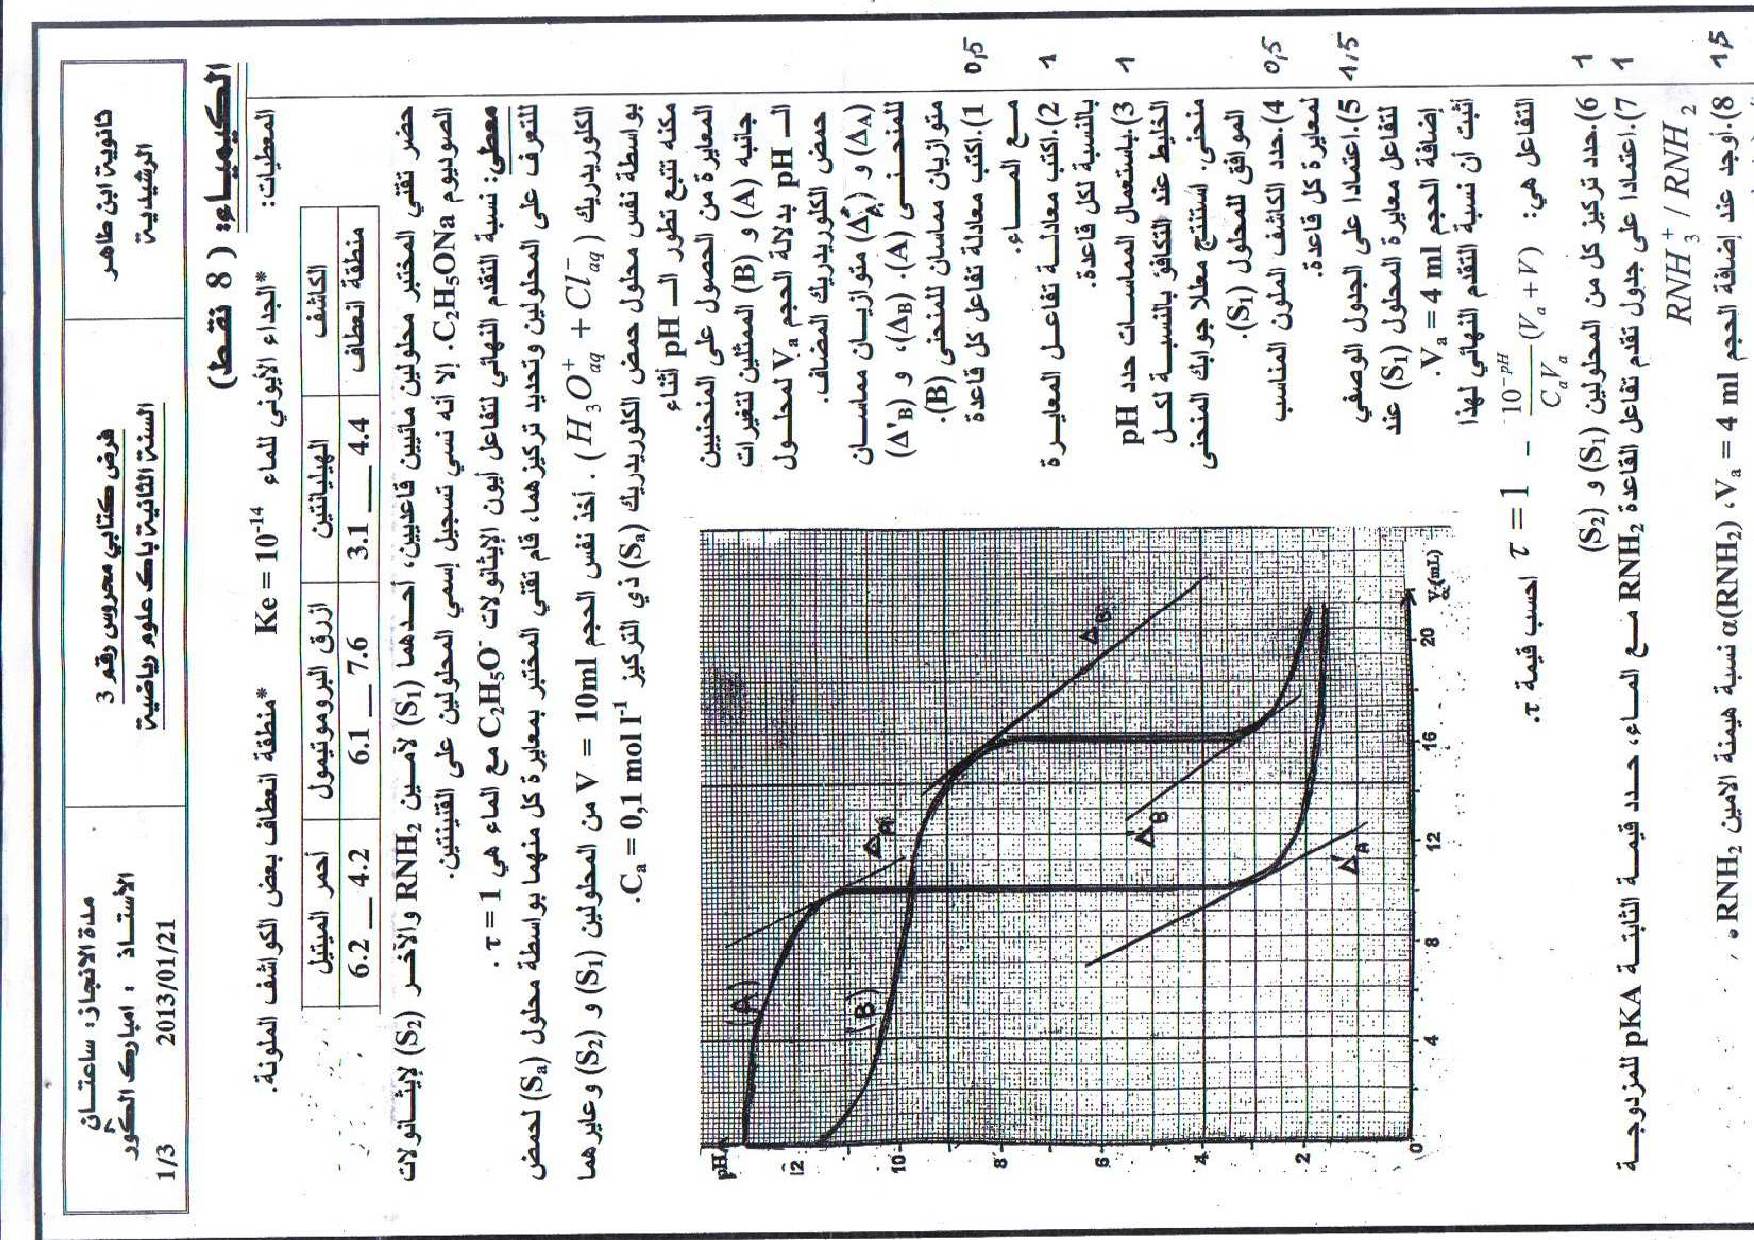 ثانوية ابن طاهر
الرشيدية
فرض كتابي محروس رقم 3
السنة الثانية باك علوم رياضية
مدة الانجاز: ساعتان
الأستاذ : امبارك
1/3 2013/01/21
الكيمياء: ( 8 نقط)
المعطيات: *الجداء الأيوني للماء Ke = 10⁻¹⁴ *منطقة انعطاف بعض الكواشف الملونة.
الكاشف | الهيليانتين | ازرق البروموتيمول | أحمر الميتيل
منطقة انعطاف | 3.1 __ 4.4 | 6.1 __ 7.6 | 4.2 __ 6.2
حضر تقني المختبر محلولين مائيين قاعديين، أحدهما (S₁) لأمين RNH₂ والآخر (S₂) لإيثانولات
الصوديوم C₂H₅ONa. إلا أنه نسي تسجيل إسمي المحلولين على القنينتين.
معطى: نسبة التقدم النهائي لتفاعل أيون الإيثانولات C₂H₅O⁻ مع الماء هي τ = 1 .
للتعرف على المحلولين وتحديد تركيزهما، قام تقني المختبر بمعايرة كل منهما بواسطة محلول (Sₐ) لحمض
الكلوريدريك (H₃O⁺aq + Cl⁻aq) . أخذ نفس الحجم V = 10ml من المحلولين (S₁) و (S₂) وعايرهما
بواسطة نفس محلول حمض الكلوريدريك (Sₐ) ذي التركيز Cₐ = 0,1 mol l⁻¹.
مكنه تتبع تطور الـ pH أثناء
المعايرة من الحصول على المنحنيين
جانبه (A) و (B) الممثلين لتغيرات
الـ pH بدلالة الحجم Vₐ لمحلول
حمض الكلوريدريك المضاف.
(Δ_A) و (Δ'_A) متوازيان مماسان
للمنحنى (A). (Δ_B) و (Δ'_B)،
متوازيان مماسان للمنحنى (B).
1).اكتب معادلة تفاعل كل قاعدة
مع الماء.
0,5
2).اكتب معادلة تفاعل المعايرة
بالنسبة لكل قاعدة.
1
3).باستعمال المماسات حدد pH
الخليط عند التكافؤ بالنسبة لكل
منحنى. استنتج معللا جوابك المنحنى
الموافق للمحلول (S₁).
1
4).حدد الكاشف الملون المناسب
لمعايرة كل قاعدة.
0,5
5).اعتمادا على الجدول الوصفي
لتفاعل معايرة المحلول (S₁) عند
إضافة الحجم Vₐ = 4 ml.
أثبت أن نسبة التقدم النهائي لهذا
التفاعل هي: τ = 1 - 10^(-pH)/(CₐVₐ) (Vₐ + V) احسب قيمة τ.
1,5
6).حدد تركيز كل من المحلولين (S₁) و (S₂)
1
7).اعتمادا على جدول تقدم تفاعل القاعدة RNH₂ مع الماء، حدد قيمة الثابتة pKA للمزدوجة
RNH₃⁺ / RNH₂
1
8).أوجد عند إضافة الحجم Vₐ = 4 ml، α(RNH₂) نسبة هيمنة الامين RNH₂ .
1,5
pH
12
10
8
6
4
2
0
4
8
12
16
20
Vₐ(mL)
(A)
(B)
Δ_A
Δ'_A
Δ_B
Δ'_B